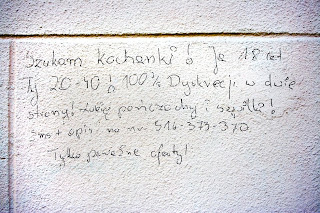 Szukam kochanki! Ja 18 lat
Ty 20-40! 100% Dyskrecji w dwie
strony! Lubię pończochy i szpilki!
sms + opis na nr. 516-373-370
Tylko poważne oferty!